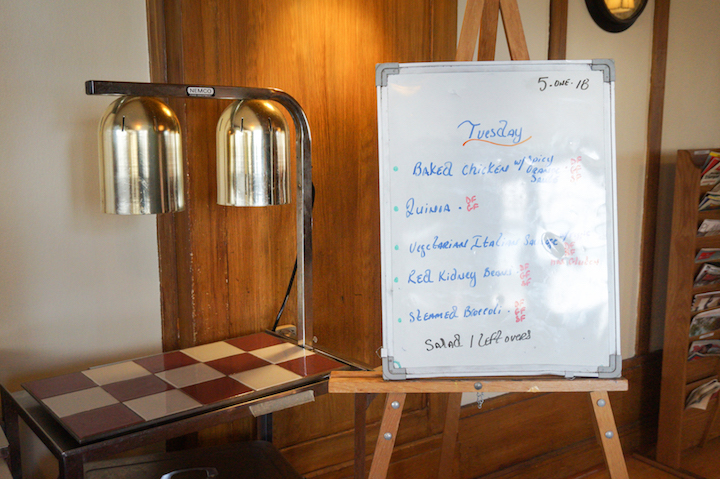 NEMCO
5.ONE.18
Tuesday
BAKED CHICKEN w/ Spicy
ORANGE
SAUCE
DF
GF
QUINIA . DF
GF
VEGETARIAN ITALIAN SAUSAGE
DF
Red Kidney BEANS DF
GF
STEAMED BROCCOLI . DF
GF
SALAD / LEFTOVERS